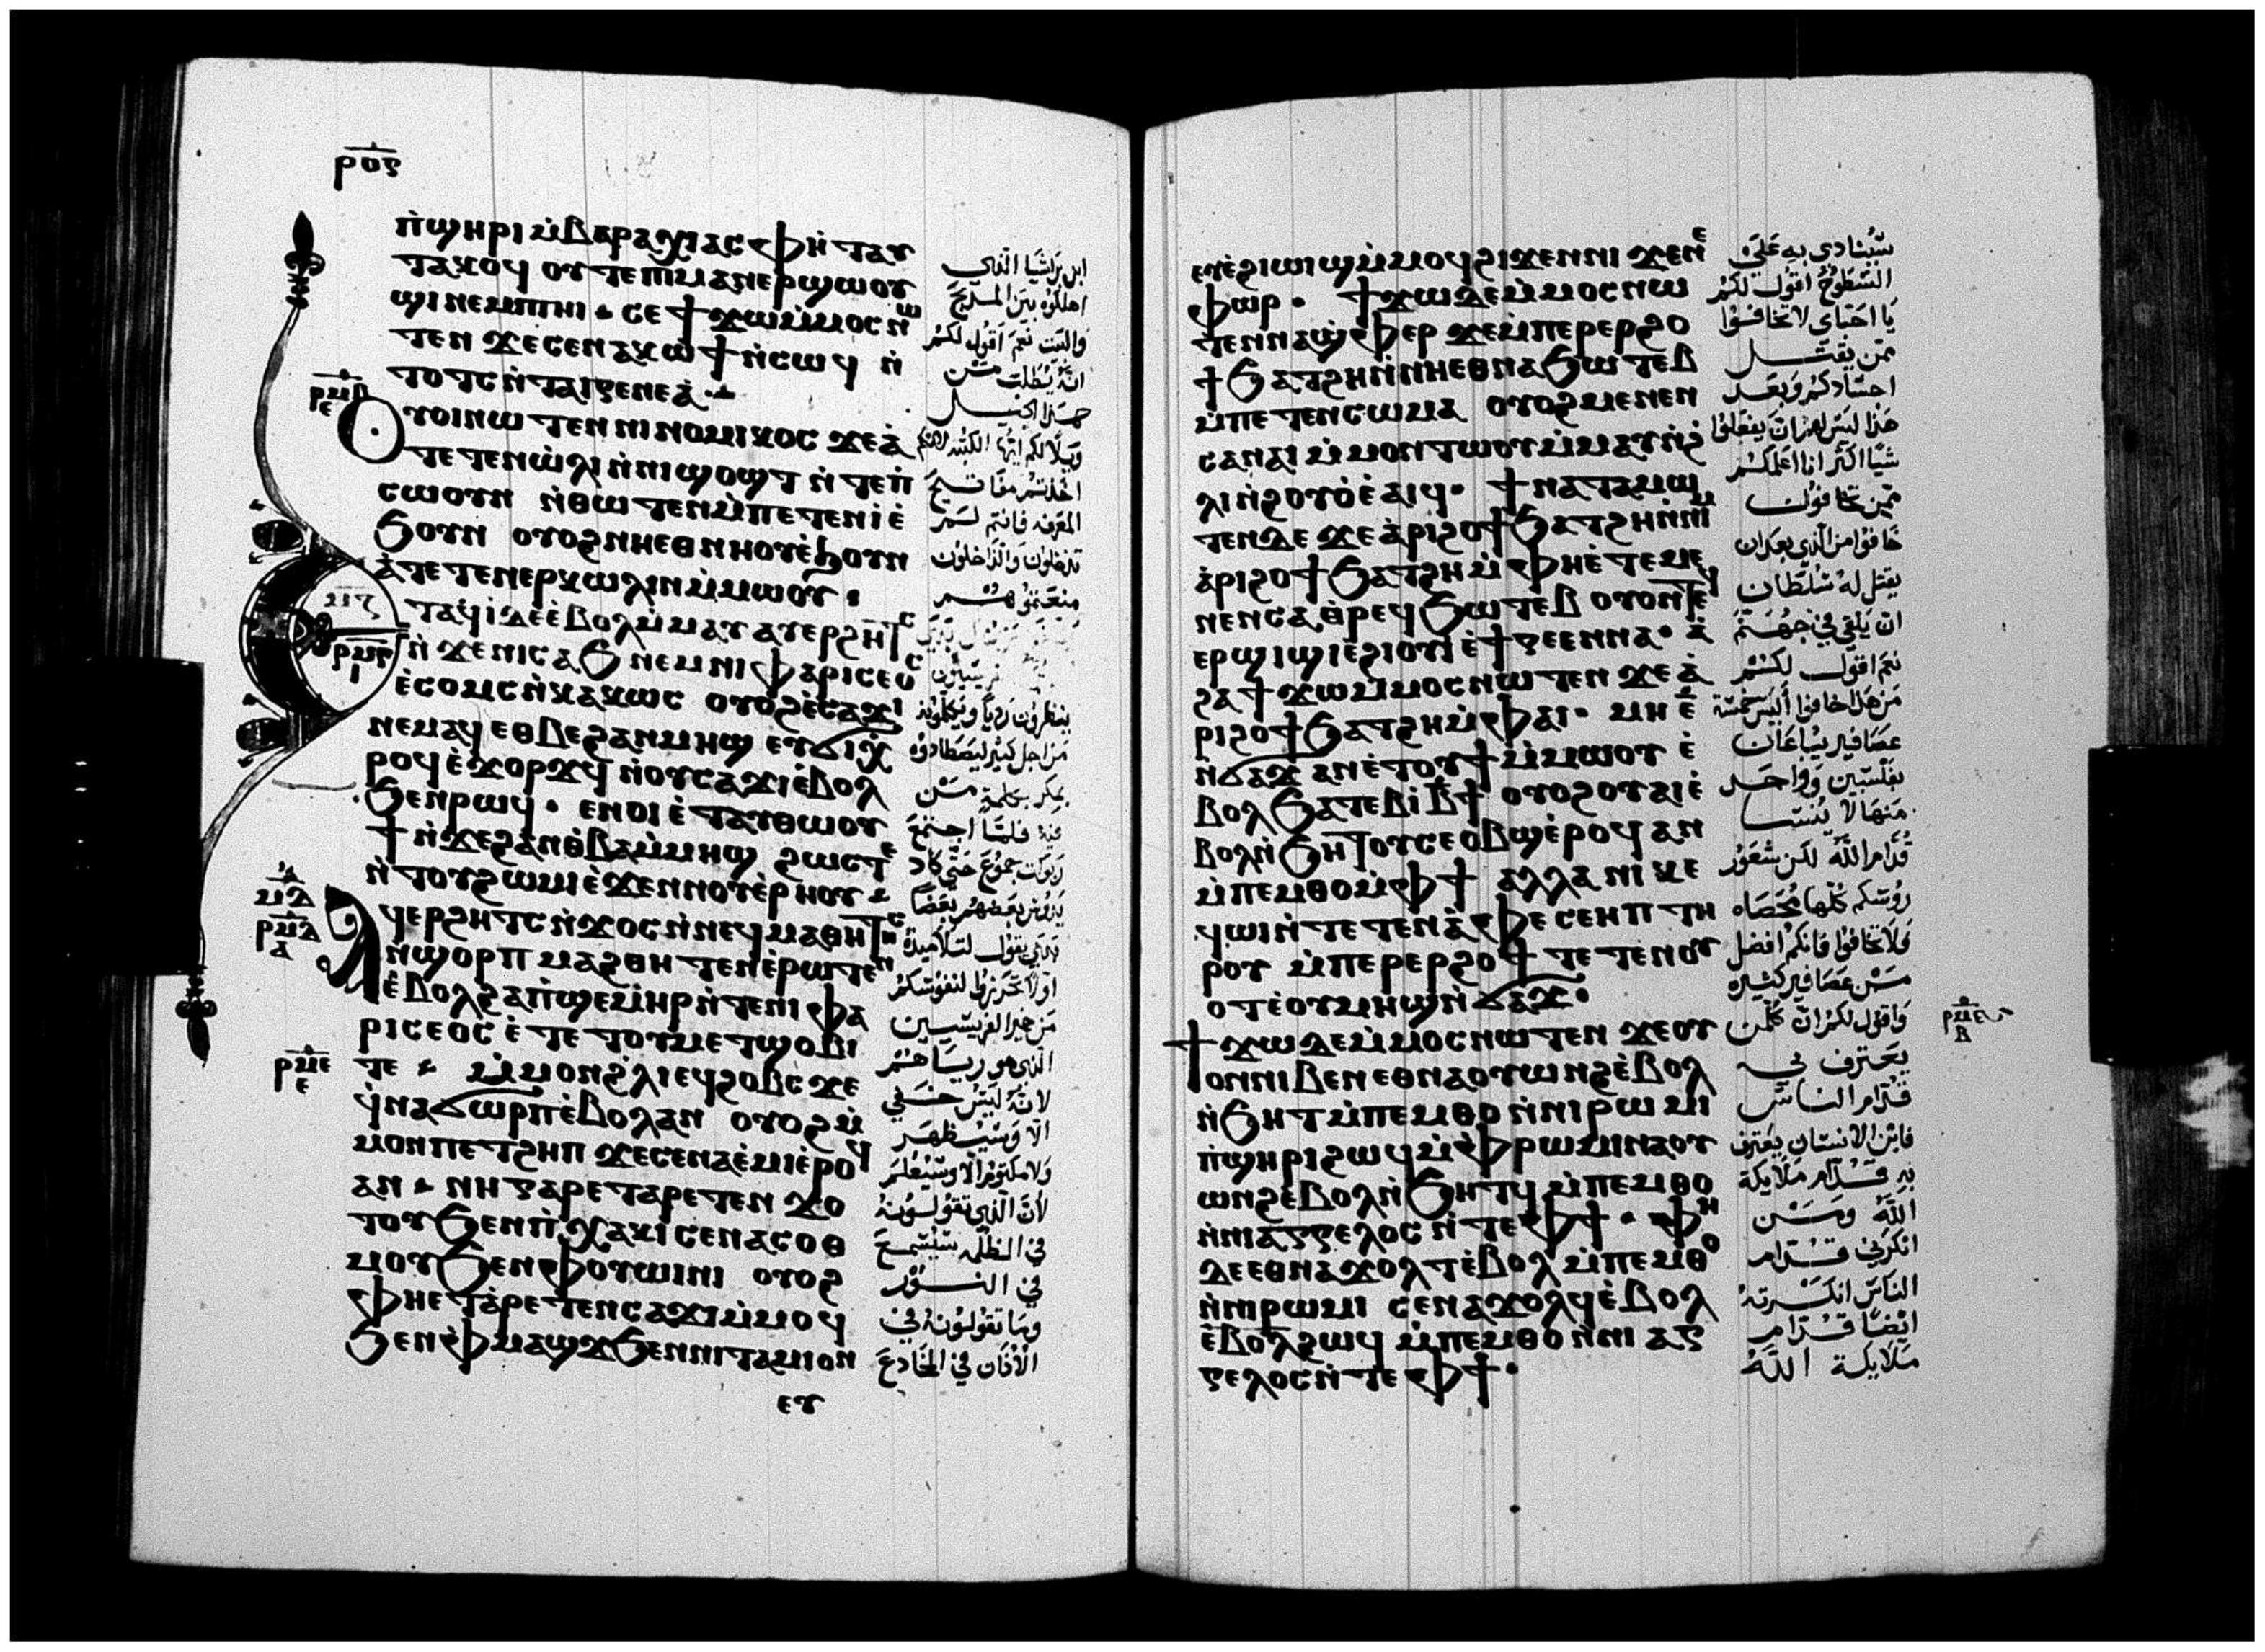 ⲣⲟⲋ
ⲡ̀ϣⲏⲣⲓ ⲙ̀ⲃⲁⲣⲁⲭⲓⲁⲥ ⲫⲏ̀ⲧⲁⲩ
ⲧⲁⲕⲟϥ ⲟⲩⲧⲉⲡⲓⲙⲁⲛⲉⲣϣⲱⲟⲩ
ϣⲓ ⲛⲉⲙⲡⲓⲏⲓ ⲥⲉ ϯϫⲱⲙ̀ⲙⲟⲥ ⲛⲱ
ⲧⲉⲛ ϫⲉⲥⲉⲛⲁⲕⲱϯ ⲛ̀ⲥⲱϥ ⲛ̀
ⲧⲟⲧⲥ ⲛ̀ⲧⲁⲓⲅⲉⲛⲉⲁ̀
ⲣⲙⲃ
ⲉ
Ⲟⲩⲟⲓⲛⲱⲧⲉⲛ ⲛⲓⲛⲟⲙⲓⲕⲟⲥ ϫⲉⲁ̀
ⲧⲉⲧⲉⲛⲱ̀ⲗⲓ ⲛ̀ⲛⲓϣⲟϣⲧ ⲛ̀ⲧⲉⲡ̀
ⲥⲱⲟⲩⲛ ⲛ̀ⲑⲱⲧⲉⲛ ⲙ̀ⲡⲉⲧⲉⲛⲓ̀ ⲉ̀
ϧⲟⲩⲛ ⲟⲩⲟϩ ⲛⲏⲉⲑⲛⲏⲟⲩ ⲉ̀ϧⲟⲩⲛ
ⲁ̀ⲧⲉⲧⲉⲛⲉⲣⲕⲱⲗⲓⲛ ⲙ̀ⲙⲱⲟⲩ
ⲙⲍ
ⲣⲙⲅ
ⲓ
ⲉ̀ⲧⲁϥⲓ̀ ⲇⲉ ⲉ̀ⲃⲟⲗ ⲙ̀ⲙⲁⲩ ⲁⲩⲉⲣϩⲏⲧⲥ
ⲛ̀ϫⲉⲛⲓⲥⲁϧ ⲛⲉⲙⲛⲓⲫⲁⲣⲓⲥⲉⲟⲥ
ⲉ̀ⲥⲟⲙⲥ ⲛ̀ⲕⲁⲕⲱⲥ ⲟⲩⲟϩ ⲉ̀ⲥⲁϫⲓ
ⲛⲉⲙⲁϥ ⲉⲑⲃⲉϩⲁⲛⲙⲏϣ ⲉⲩϭⲓⲭ̀
ⲣⲟϥ ⲉ̀ϫⲟⲣϫϥ ⲛ̀ⲟⲩⲥⲁϫⲓ ⲉ̀ⲃⲟⲗ
ϧⲉⲛⲣⲱϥ ⲉⲛⲟⲓⲉ̀ⲧⲁⲩⲑⲱⲟⲩ
ϯ ⲛ̀ϫⲉϩⲁⲛⲑ̀ⲃⲁ ⲙ̀ⲙⲏϣ ϩⲱⲥⲧⲉ
ⲛ̀ⲧⲟⲩϩⲱⲙⲓ ⲉ̀ϫⲉⲛⲛⲟⲩⲉ̀ⲣⲏⲟⲩ
ⲙⲇ
ⲣⲙⲇ
ⲁ
Ⲁϥⲉⲣϩⲏⲧⲥ ⲛ̀ϫⲟⲥ ⲛ̀ⲛⲉϥⲙⲁⲑⲏⲧⲏⲥ
ⲛ̀ϣⲟⲣⲡ ⲙⲁϩⲑⲏⲧⲉⲛ ⲉ̀ⲣⲱⲧⲉⲛ
ⲉ̀ⲃⲟⲗϩⲁ ⲡ̀ϣⲉⲙⲏⲣ ⲛ̀ⲧⲉⲛⲓⲫⲁ
ⲣⲓⲥⲉⲟⲥ ⲉ̀ⲧⲉ ⲧⲟⲩⲙⲉⲧϣⲟⲃⲓ
ⲣⲙⲉ
ⲉ
ⲧⲉ ⲙ̀ⲙⲟⲛϩ̀ⲗⲓ ⲉϥϩⲟⲃⲥ ϫⲉ
ϥ̀ⲛⲁϭⲱⲣⲡ ⲉ̀ⲃⲟⲗ ⲁⲛ ⲟⲩⲟϩ ⲙ̀
ⲙⲟⲛⲡⲉⲧϩⲏⲡ ϫⲉⲥⲉⲛⲁⲉ̀ⲙⲓ ⲉ̀ⲣⲟϥ
ⲁⲛ ⲛⲏⲅⲁⲣ ⲉⲧⲁⲣⲉⲧⲉⲛϫⲟ
ⲧⲟⲩ ϧⲉⲛⲡ̀ⲭⲁⲕⲓ ⲥⲉⲛⲁⲥⲟⲑ
ⲙⲟⲩ ϧⲉⲛⲫⲟⲩⲱⲓⲛⲓ ⲟⲩⲟϩ
ⲫⲏⲉⲧⲁ̀ⲣⲉⲧⲉⲛⲥⲁϫⲓ ⲙ̀ⲙⲟϥ
ϧⲉⲛⲫ̀ⲙⲁϣϫ ϧⲉⲛⲛⲓⲧⲁⲙⲓⲟⲛ
ⲉⲩ
ابن براشيا الذي
اهلكوه بين المدبح
والبيت نعم اقول لكم
انه يطلب من
هذا الجيل
ويلا لكم ايها الكتبه لانكم
اخذتم مفاتيح
المعرفه فانتم لستم
تدخلون والداخلون
منعتموهم
ينظرون رديا ويكلمونه
من اجل كثير ليصطادوه
بمكر بكلمة من
فمه فلما اجتمع
ربوات جموع حتى كاد
يدوس بعضهم بعضا
بدي يقول لتلاميذه
اولا تحرزوا لنفوسكم
من خمير الفريسيين
الذي هو رياهم
لانه ليس خفي
الا وسيظهر
ولا مكتوم الا وسيعلم
لان الذي تقولونه
في الظلمه سيسمع
في النور
وما تقولونه في
الاذان في المخادع
ⲉⲩⲉ̀ϩⲓⲱⲓϣ ⲙ̀ⲙⲟϥ ϩⲓϫⲉⲛⲛⲓϫⲉⲛⲉ
ⲫⲱⲣ ϯϫⲱ ⲇⲉ ⲙ̀ⲙⲟⲥ ⲛⲱ
ⲧⲉⲛ ⲛⲁϣ̀ⲫⲉⲣ ϫⲉⲙ̀ⲡⲉⲣⲉⲣϩⲟ
ϯ ϧⲁⲧϩⲏ ⲛ̀ⲛⲏⲉⲑⲛⲁϧⲱⲧⲉⲃ
ⲙ̀ⲡⲉⲧⲉⲛⲥⲱⲙⲁ ⲟⲩⲟϩ ⲙⲉⲛⲉⲛ
ⲥⲁⲛⲁⲓ ⲙ̀ⲙⲟⲛⲧⲱⲟⲩ ⲙ̀ⲙⲁⲩ ⲛ̀ϩ̀
ⲗⲓ ⲛ̀ϩⲟⲩⲟ̀ ⲉ̀ⲁⲓϥ ϯⲛⲁⲧⲁⲙⲱ
ⲧⲉⲛ ⲇⲉ ϫⲉⲁ̀ⲣⲓϩⲟϯ ϧⲁⲧϩⲏ ⲛ̀ⲛⲓⲙ
ⲁ̀ⲣⲓϩⲟϯ ϧⲁⲧϩⲏ ⲙ̀ⲫⲏⲉ̀ⲧⲉⲙⲉ
ⲛⲉⲛⲥⲁ ⲑ̀ⲣⲉϥϧⲱⲧⲉⲃ ⲟⲩⲟⲛⲧⲉϥ
ⲉⲣϣⲓϣⲓ ⲉ̀ϩⲓⲟⲩⲓ̀ ⲉ̀ϯⲅⲉⲉⲛⲛⲁ ⲁ̀
ϩⲁ ϯϫⲱⲙ̀ⲙⲟⲥ ⲛⲱⲧⲉⲛ ϫⲉⲁ̀
ⲣⲓϩⲟϯ ϧⲁⲧϩⲏ ⲙ̀ⲫⲁⲓ ⲙⲏ ⲉ̄
ⲛ̀ϭⲁϫ ⲁⲛ ⲉ̀ⲧⲟⲩϯ ⲙ̀ⲙⲱⲟⲩ ⲉ̀
ⲃⲟⲗ ϧⲁⲧⲉⲃⲓ ⲃ̄ϯ ⲟⲩⲟϩ ⲟⲩⲁⲓ ⲉ̀
ⲃⲟⲗ ⲛ̀ϧⲏⲧⲟⲩ ⲥⲉⲟⲃϣ ⲉ̀ⲣⲟϥ ⲁⲛ
ⲙ̀ⲡⲉⲙⲑⲟ ⲙ̀ⲫϯ ⲁⲗⲗⲁ ⲛⲓⲕⲉ
ϥⲱⲓ ⲛ̀ⲧⲉⲧⲉⲛⲁ̀ⲫⲉ ⲥⲉⲏⲡ ⲧⲏ
ⲣⲟⲩ ⲙ̀ⲡⲉⲣⲉⲣϩⲟϯ ⲧⲉⲧⲉⲛⲟⲩ
ⲟⲧ ⲉ̀ⲟⲩⲙⲏϣ ⲛ̀ϭⲁϫ
ϯϫⲱ ⲇⲉ ⲙ̀ⲙⲟⲥ ⲛⲱⲧⲉⲛ ϫⲉⲟⲩ
ⲟⲛⲛⲓⲃⲉⲛ ⲉⲑⲛⲁⲟⲩⲱⲛϩ ⲉ̀ⲃⲟⲗ
ⲛ̀ϧⲏⲧ ⲙ̀ⲡⲉⲙⲑⲟ ⲛ̀ⲛⲓⲣⲱⲙⲓ
ⲡ̀ϣⲏⲣⲓ ϩⲱϥ ⲙ̀ⲫ̀ⲣⲱⲙⲓ ⲛⲁⲟⲩ
ⲱⲛϩ ⲉ̀ⲃⲟⲗ ⲛ̀ϧⲏⲧϥ ⲙ̀ⲡⲉⲙⲑⲟ
ⲛ̀ⲛⲓⲁⲅⲅⲉⲗⲟⲥ ⲛ̀ⲧⲉ ⲫϯ ⲫⲏ
ⲇⲉ ⲉⲑⲛⲁϫⲟⲗⲧ ⲉ̀ⲃⲟⲗ ⲙ̀ⲡⲉⲙⲑⲟ
ⲛ̀ⲛⲓⲣⲱⲙⲓ ⲥⲉⲛⲁϫⲟⲗϥ ⲉ̀ⲃⲟⲗ
ⲉ̀ⲃⲟⲗ ϩⲱϥ ⲙ̀ⲡⲉⲙⲑⲟ ⲛ̀ⲛⲓⲁⲅ
ⲅⲉⲗⲟⲥ ⲛ̀ⲧⲉ ⲫϯ
سينادى به على
السطوح اقول لكم
يا احباي لا تخافوا
ممن يقتل
اجسادكم وبعد
هذا ليس لهم ان يفعلوا
شيا اكثر انا اعلمكم
ممن تخافون
خافوا من الذي بعد ان
يقتل له سلطان
ان يلقي في جهنم
نعم اقول لكم
من هذا خافوا اليس خمسة
عصافير يباعان
بفلسين وواحد
منها لا ينسى
قدام الله لكن شعور
روسكم كلها محصاه
فلا تخافوا فانكم افضل
من عصافير كثيره
واقول لكم ان كلمن
يعترف بي
قدام الناس
فابن الانسان يعترف
به قدام ملايكة
الله ومن
انكرني قدام
الناس انكرته
ايضا قدام
ملايكة الله
ⲣⲙⲉ
ⲃ